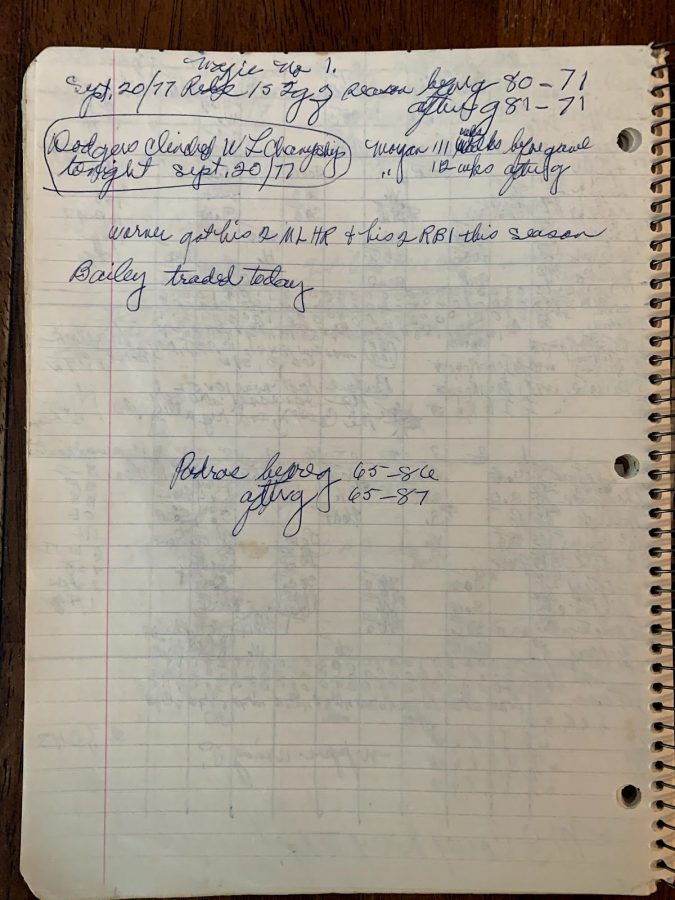 Magic No 1.
Sept. 20/77 Reds 152 g of season before g 80-71
after g 81-71
Dodgers Clinched W L Champship
tonight sept. 20/77
Morgan 111 wks before game
" 112 wks after g
Warner got his 2 ML HR & his 2 RBI this season
Bailey traded today
Padres before g 65-86
after g 65-87